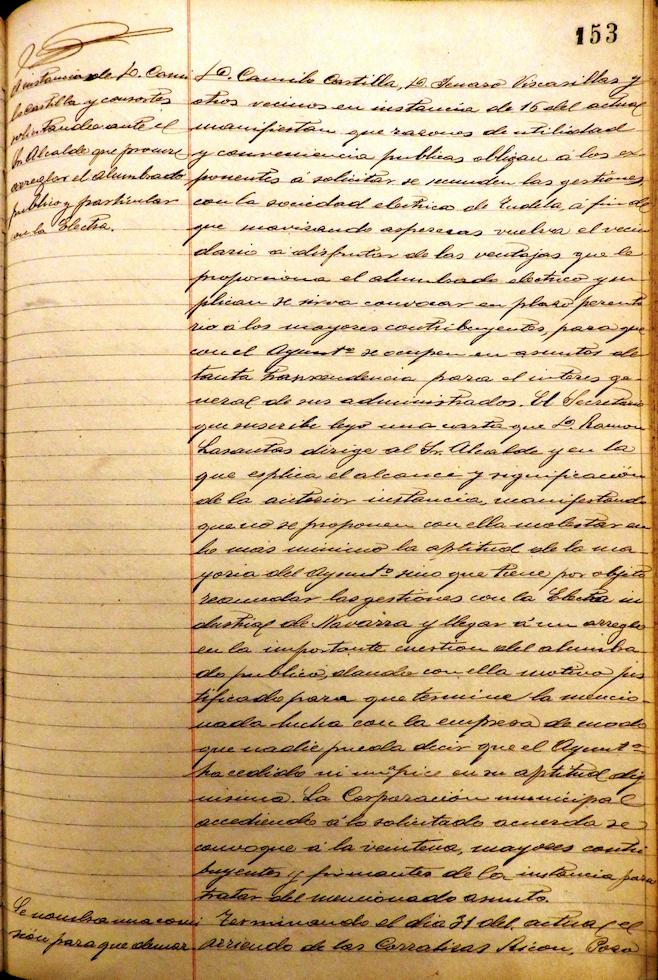 153
A instancia de D. Cami
lo Castilla y consortes
solicitando ante el
Sr. Alcalde que procure
arreglar el alumbrado
público y particular
con la Electra.
D. Camilo Castilla, D. Genaro Viscasillas y
otros vecinos en instancia de 16 del actual
manifiestan que razones de utilidad
y conveniencia publicas obligan á los ex
ponentes á solicitar se reanuden las gestiones
con la sociedad electrica de Tudela, á fin de
que suavizando asperezas vuelva el vecin
dario á disfrutar de las ventajas que le
proporciona el alumbrado electrico y su
plican se sirva convocar en plazo perento
rio á los mayores contribuyentes, para que
con el Ayuntº se ocupen en asuntos de
tanta trascendencia para el interes ge-
neral de sus administrados. El Secretario
que suscribe leyó una carta que D. Ramon
Lasantas dirige al Sr. Alcalde y en la
que esplica el alcance y significación
de la anterior instancia, manifestando
que no se proponen con ella molestar en
lo mas minimo la aptitud de la ma
yoria del Ayuntº sino que tiene por objeto
reanudar las gestiones con la Electra in
dustrial de Navarra y llegar á un arreglo
en la importante cuestion del alumbra
do publico, dando con ella motivo jus
tificado para que termine la mencio-
nada lucha con la empresa de modo
que nadie pueda decir que el Ayuntº
ha cedido ni un ápice en su aptitud dig
nisima. La Corporación municipal
accediendo á lo solicitado acuerda se
convoque á la veintena, mayores contri
buyentes y firmantes de la instancia para
tratar del mencionado asunto.
Se nombra una comi
sión para que demar
Terminando el dia 31 del actual el
arriendo de las Corralizas Ricon, Poso